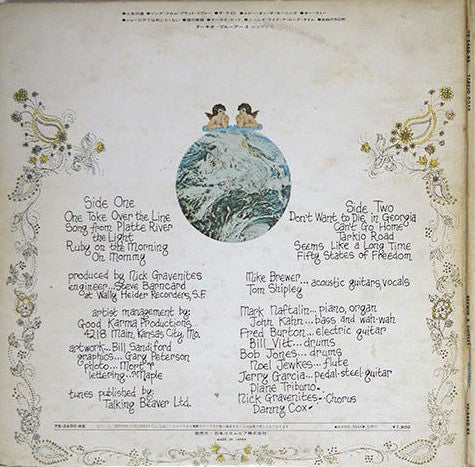 Side One
One Toke Over the Line
Song from Platte River
the Light
Ruby on the Morning
Oh Mommy
produced by Nick Gravenites
engineer... Steve Barncard
at Wally Heider Recorders, S.F.
artist management by:
Good Karma Productions
4218 Main, Kansas City, Mo.
artwork... Bill Sandiford
graphics... Gary Peterson
photo... Mort
lettering... Maple
tunes published by:
Talking Beaver Ltd.
Side Two
Don't Want to Die in Georgia
Can't Go Home
Tarkio Road
Seems Like a Long Time
Fifty States of Freedom
Mike Brewer
Tom Shipley
...acoustic guitars, vocals
Mark Naftalin... piano, organ
John Kahn... bass and wah-wah
Fred Burton... electric guitar
Bill Vitt... drums
Bob Jones... drums
Noel Jewkes... flute
Jerry Garcia... pedal-steel-guitar
Diane Tribuno
Nick Gravenites - Chorus
Danny Cox
MADE IN JAPAN